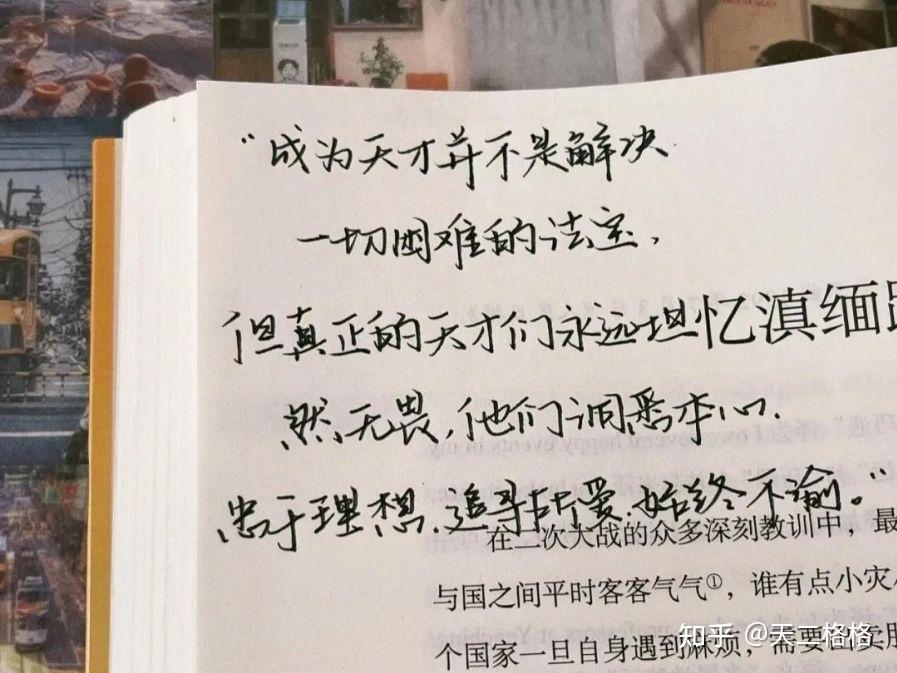 “成为天才并不是解决
一切困难的法宝，
但真正的天才们永远坦
忆滇缅
然无畏，他们洞悉本心.
忠于理想.追寻热爱.始终不渝。”
在二次大战的众多深刻教训中，最
与国之间平时客客气气①，谁有点小灾
个国家一旦自身遇到麻烦，需要出卖
知乎 @天二格格